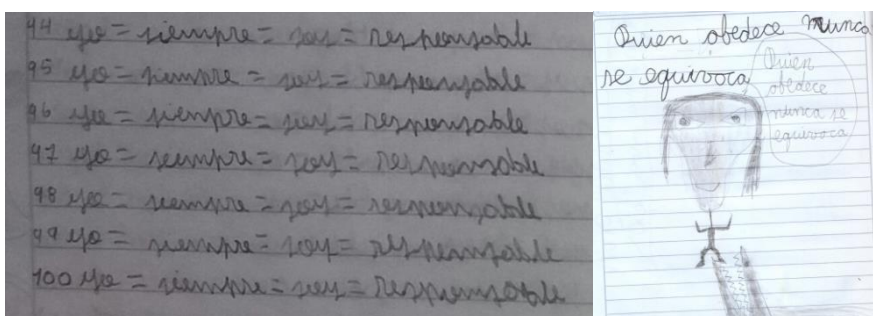 94 yo = siempre = soy = responsable
95 yo = siempre = soy = responsable
96 yo = siempre = soy = responsable
97 yo = siempre = soy = responsable
98 yo = siempre = soy = responsable
99 yo = siempre = soy = responsable
100 yo = siempre = soy = responsable
Quien obedece nunca
se equivoca
Quien
obedece
nunca se
equivoca